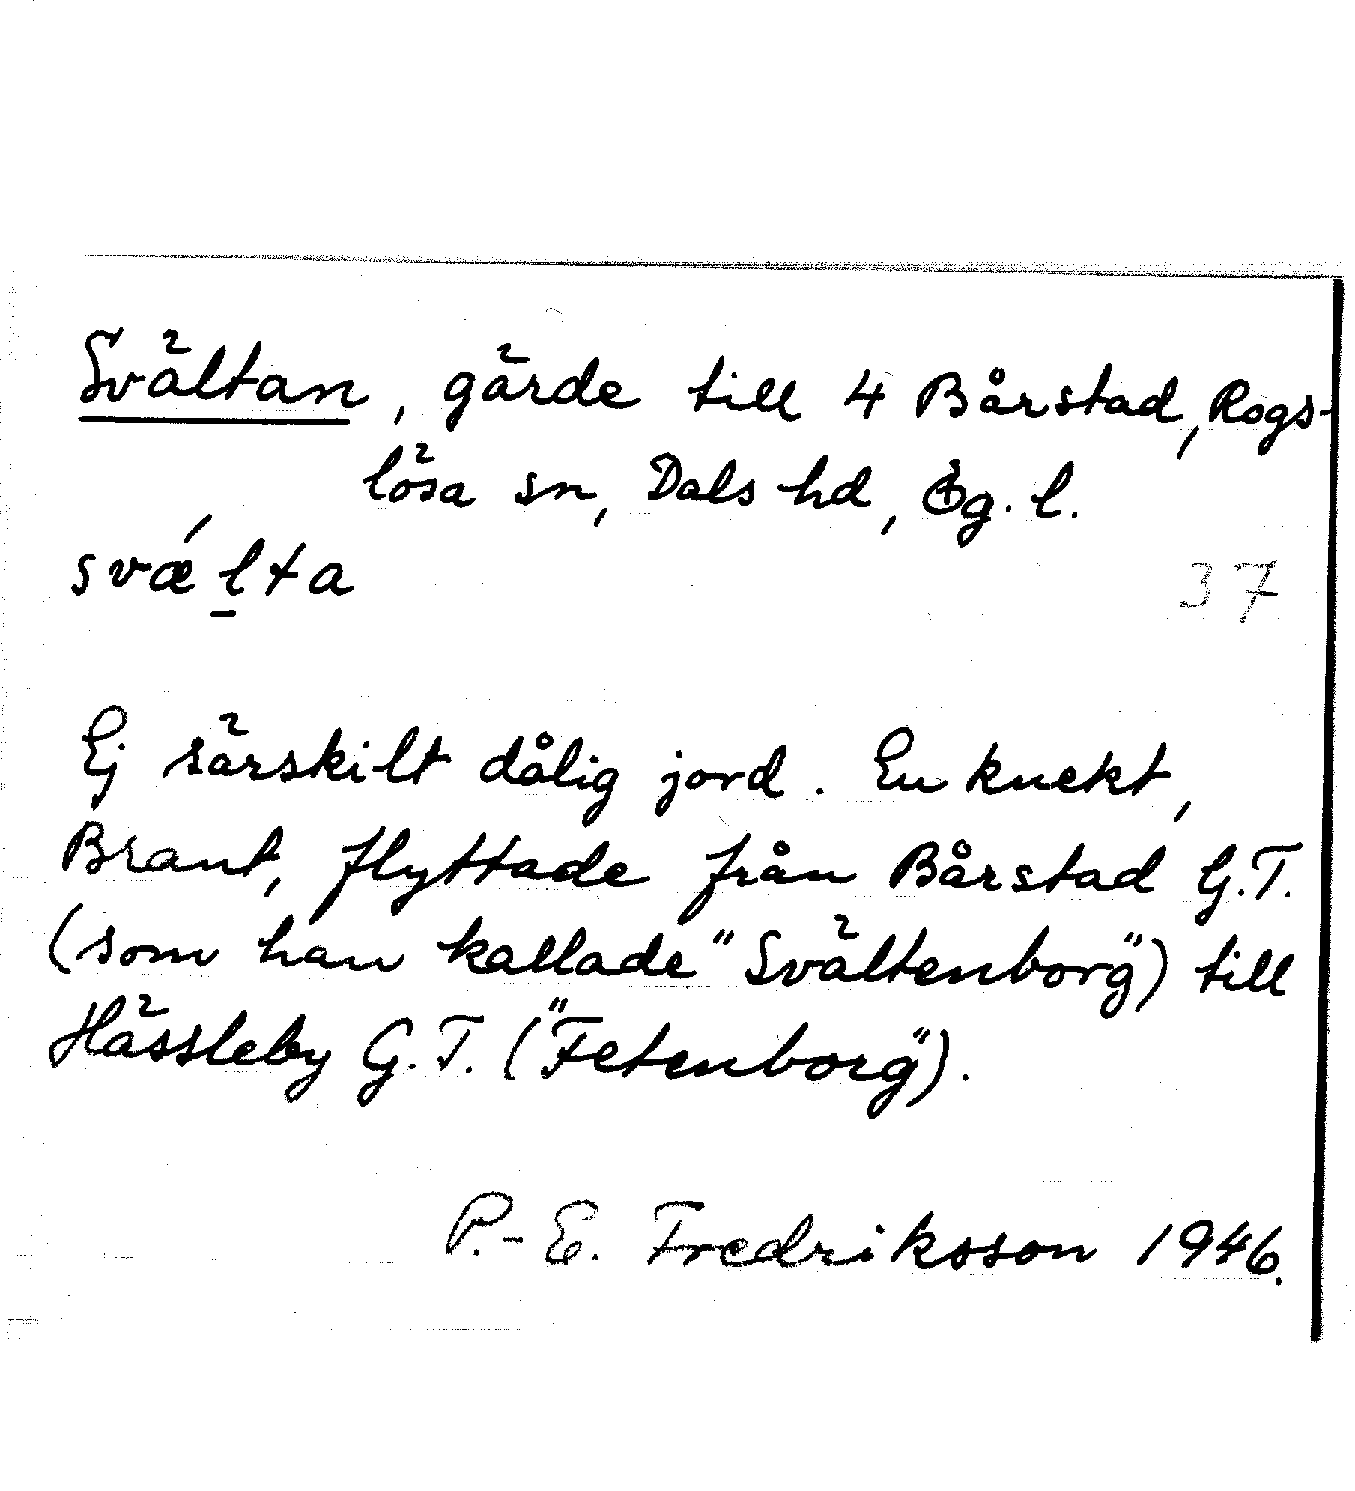 Svältan, gärde till 4 Bårstad, Rogs-
lösa sn, Dals hd, Ög. l.
svǽl̲ta
37
Ej särskilt dålig jord. En knekt,
Brant, flyttade från Bårstad G.T.
(som han kallade "Svältenborg") till
Hässleby G.T. ("Fetenborg").
P.-E. Fredriksson 1946.